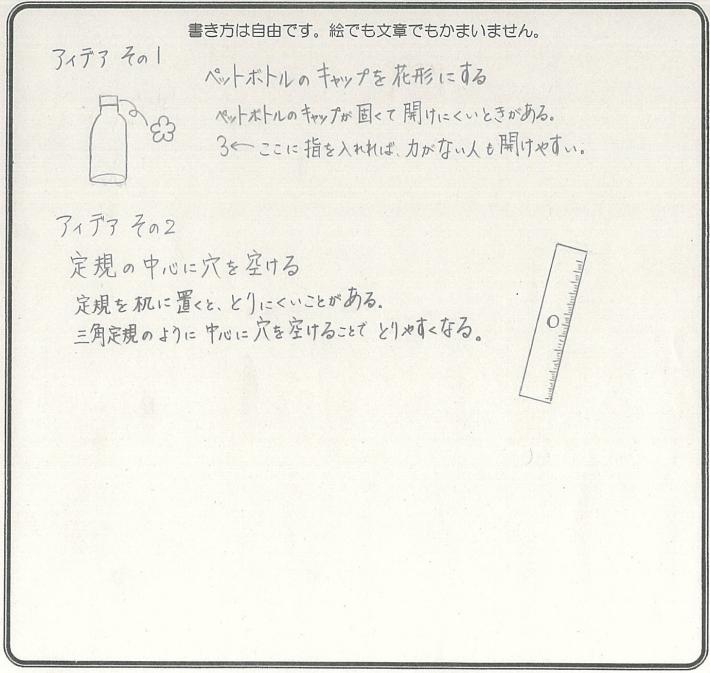 書き方は自由です。絵でも文章でもかまいません。
アイデア その1
ペットボトルのキャップを花形にする
ペットボトルのキャップが固くて開けにくいときがある。
3←ここに指を入れれば、力がない人も開けやすい。
アイデア その2
定規の中心に穴を空ける
定規を机に置くと、とりにくいことがある。
三角定規のように中心に穴を空けることでとりやすくなる。